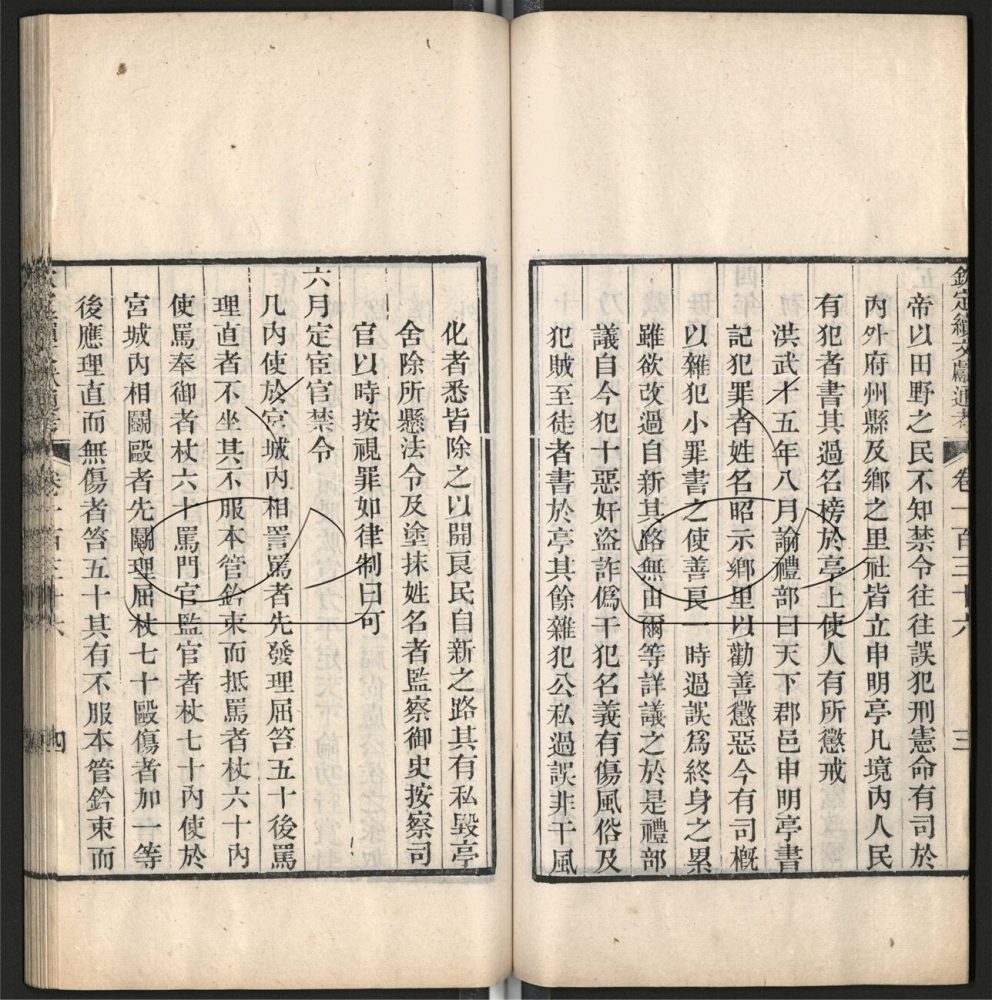 欽定續文獻通考 卷一百三十六 三
帝以田野之民不知禁令往往誤犯刑憲命有司於
內外府州縣及鄉之里社皆立申明亭凡境內人民
有犯者書其過名榜於亭上使人有所懲戒
洪武十五年八月諭禮部曰天下郡邑申明亭書
記犯罪者姓名昭示鄉里以勸善懲惡今有司槪
以雜犯小罪書之使善良一時過誤爲終身之累
雖欲改過自新其路無由爾等詳議之於是禮部
議自今犯十惡奸盜詐僞干犯名義有傷風俗及
犯賊至徒者書於亭其餘雜犯公私過誤非干風
化者悉皆除之以開良民自新之路其有私毀亭
舍除所懸法令及塗抹姓名者監察御史按察司
官以時按視罪如律制曰可
六月定宦官禁令
凡內使於宮城內相詈罵者先發理屈笞五十後罵
理直者不坐其不服本管鈐束而抵罵者杖六十內
使罵奉御者杖六十罵門官監官者杖七十內使於
宮城內相鬭毆者先鬭理屈杖七十毆傷者加一等
後應理直而無傷者笞五十其有不服本管鈐束而
卷一百三十六 四